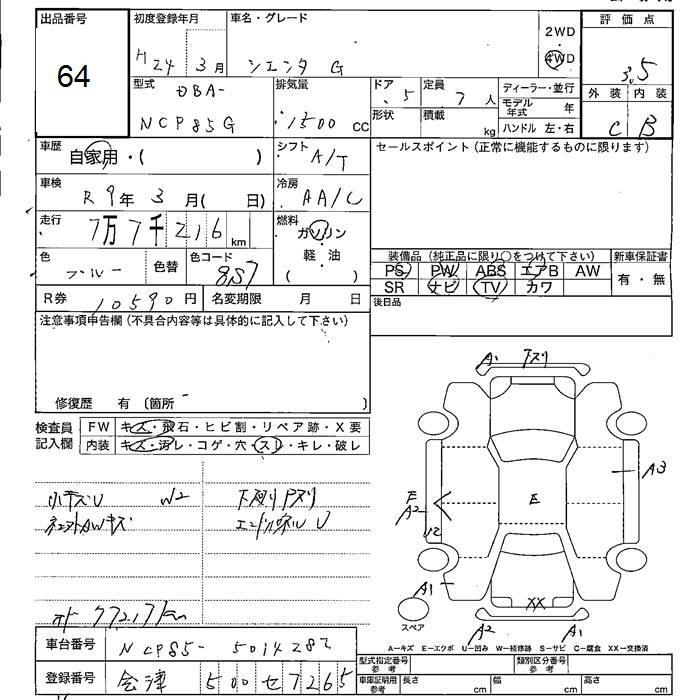 出品番号 初度登録年月 車名・グレード 評価点
64
H24 3月 シエンタ G 2WD 4WD 3.5
外装 内装
C B
型式 DBA- 排気量 ドア 5 定員 7人 ディーラー・並行
NCP85G 1500 cc 形状 積載 kg モデル年式 年
ハンドル 左・右
車歴 自家用・( ) シフト A/T セールスポイント (正常に機能するものに限ります)
車検 R9年 3月( 日) 冷房 AA/C
走行 7万7千216km 燃料 ガソリン
軽・油
( )
色 ブルー 色替 色コード 8S7
装備品 (純正品に限り〇をつけて下さい) 新車保証書
PS PW ABS エアB AW 有・無
SR ナビ TV カワ
R券 10590円 名変期限 月 日 後日品
注意事項申告欄 (不具合内容等は具体的に記入して下さい)
修復歴 有 (箇所 )
検査員記入欄 FW キズ・飛石・ヒビ割・リペア跡・X要
内装 キズ・汚レ・コゲ・穴・スレ・キレ・破レ
小キズU W2
77217km
A1 下スリ
A3
E
E
A2
U2
A1
XX
A2 A1
スペア
A-キズ E-エクボ U-凹み W-補修跡 S-サビ C-腐食 XX-交換済
車台番号 NCP85-5014282
登録番号 会津 500 セ 7265
型式指定番号 参考 類別区分番号 参考
車庫証明用 参考 長さ cm 幅 cm 高さ cm